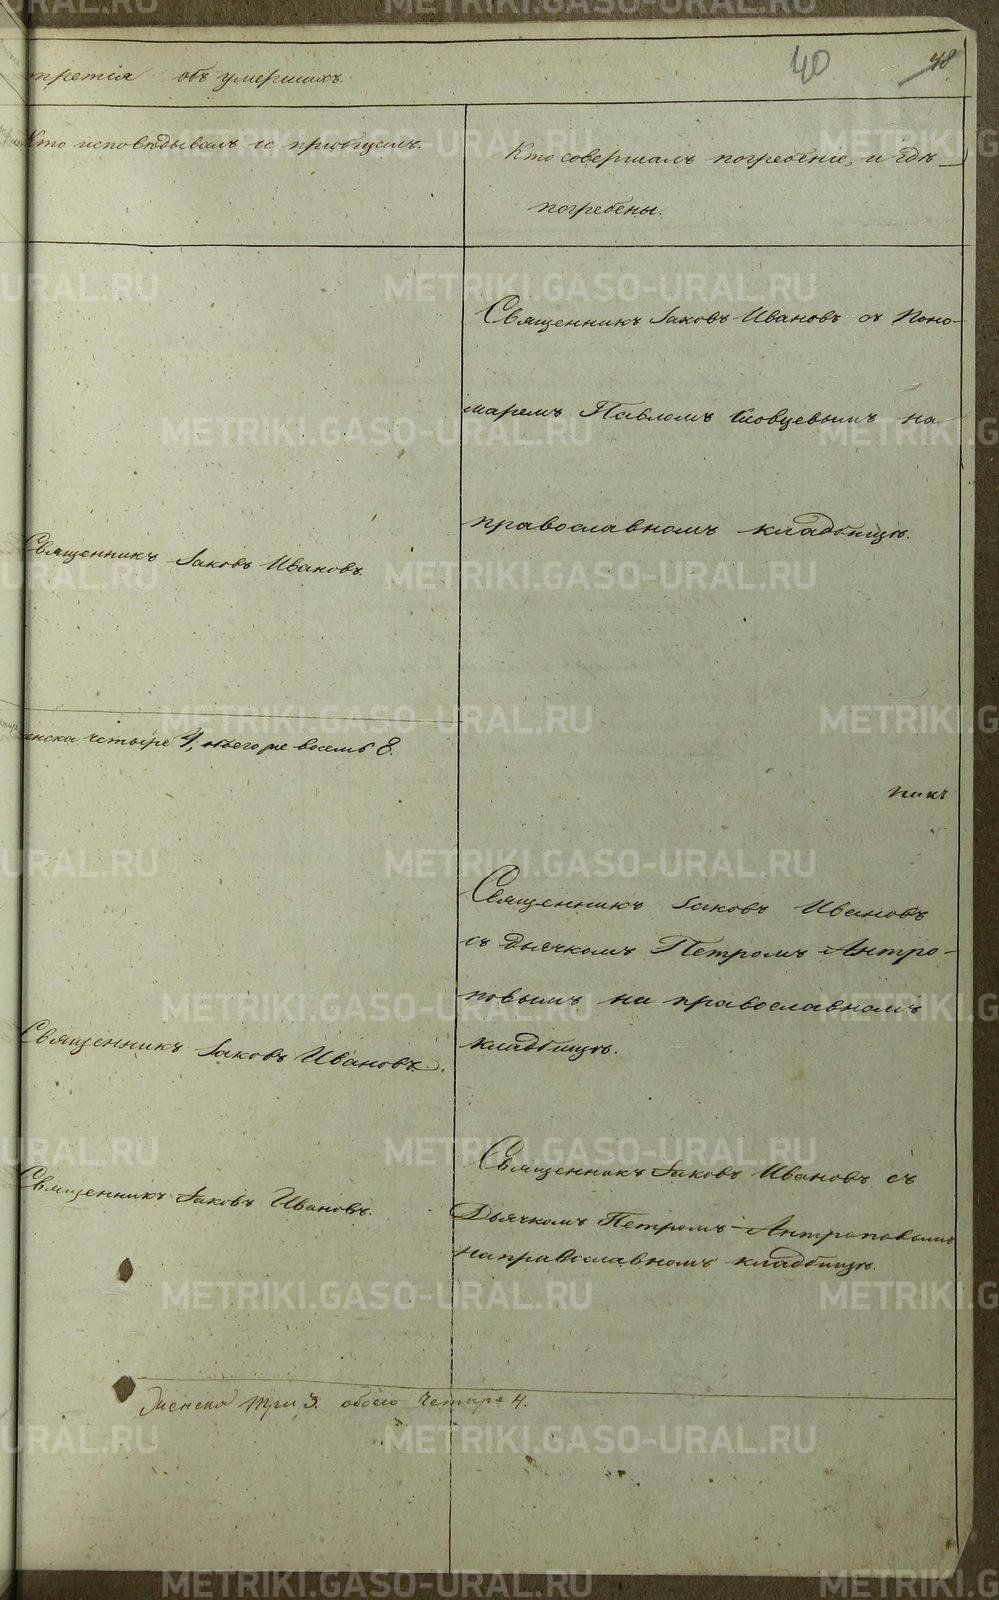 40
48
третія объ умершихъ.
Кто исповѣдывалъ и пріобщалъ.
Кто совершалъ погребеніе, и гдѣ
погребены.
Священникъ Іаковъ Ивановъ съ Поно-
маремъ Павломъ Словцевымъ на
православномъ кладбищѣ.
Священникъ Іаковъ Ивановъ.
женска четыре 4, обоего же восемь 8.
никъ
Священникъ Іаковъ Ивановъ
съ дьячкомъ Петромъ Антро-
повымъ на православномъ
кладбищѣ.
Священникъ Іаковъ Ивановъ.
Священникъ Іаковъ Ивановъ съ
Дьячкомъ Петромъ Антроповымъ
на православномъ кладбищѣ.
Священникъ Іаковъ Ивановъ.
Женска три 3. обоего четыре 4.
METRIKI.GASO-URAL.RU